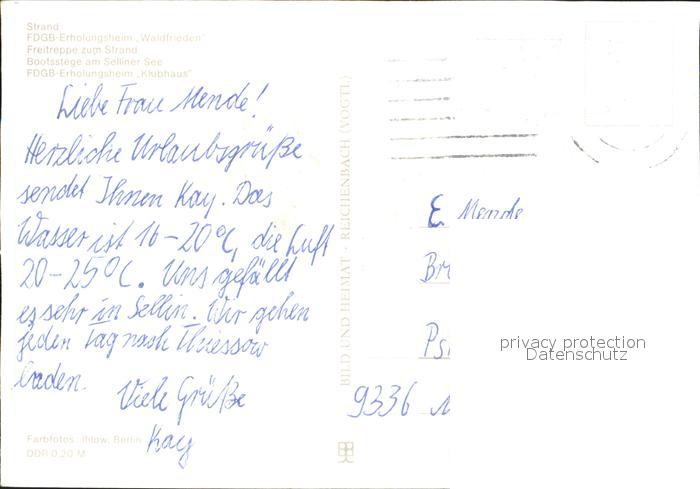 Strand
FDGB-Erholungsheim „Waldfrieden"
Freitreppe zum Strand
Bootsstege am Selliner See
FDGB-Erholungsheim „Klubhaus"
Liebe Frau Mende!
Herzliche Urlaubsgrüße
sendet Ihnen Kay. Das
Wasser ist 16-20°C, die Luft
20-25°C. Uns gefällt
es sehr in Sellin. Wir gehen
jeden Tag nach Thiessow
baden.
Viele Grüße
Kay
Farbfotos: Ihlow, Berlin
DDR 0,20 M
BILD UND HEIMAT · REICHENBACH (VOGTL)
E. Mende
9336
privacy protection
Datenschutz